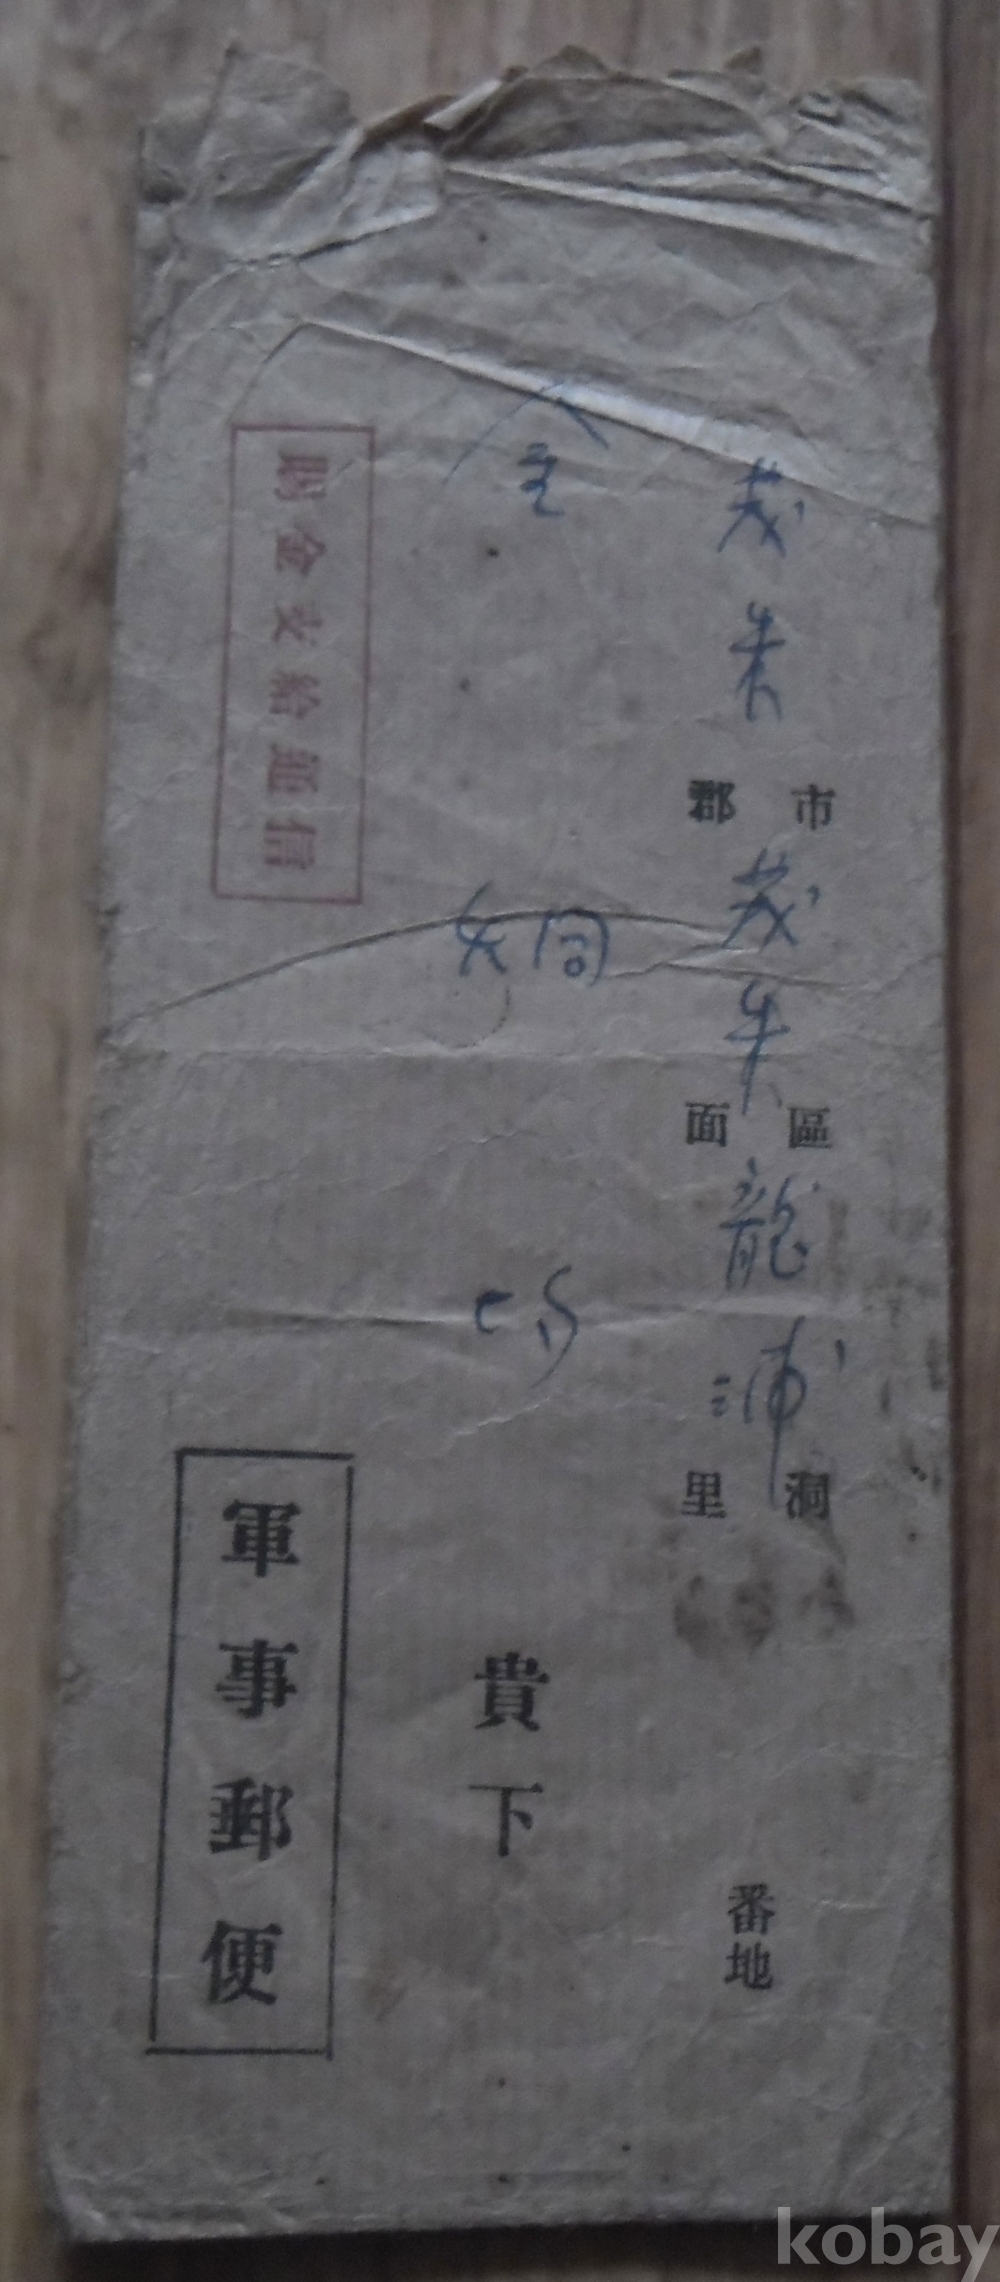 茂朱 市 郡 茂朱 區 面 龍浦 洞 里 番地
金 貴下
賜金支給通信
軍事郵便
kobay